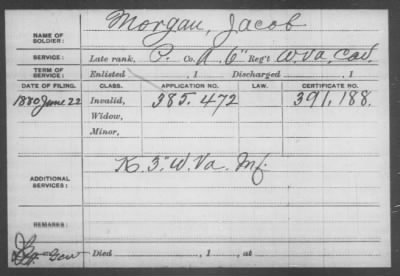 NAME OF SOLDIER: Morgan, Jacob
SERVICE: Late rank, P. Co. A. 6" Reg't W. Va. Cav.
TERM OF SERVICE: Enlisted , 1 Discharged , 1
DATE OF FILING. CLASS. APPLICATION NO. LAW. CERTIFICATE NO.
1880 June 22 Invalid, 385.472 391,188.
Widow,
Minor,
ADDITIONAL SERVICES: K. 3" W. Va. Inf.
REMARKS:
Died , 1 , at